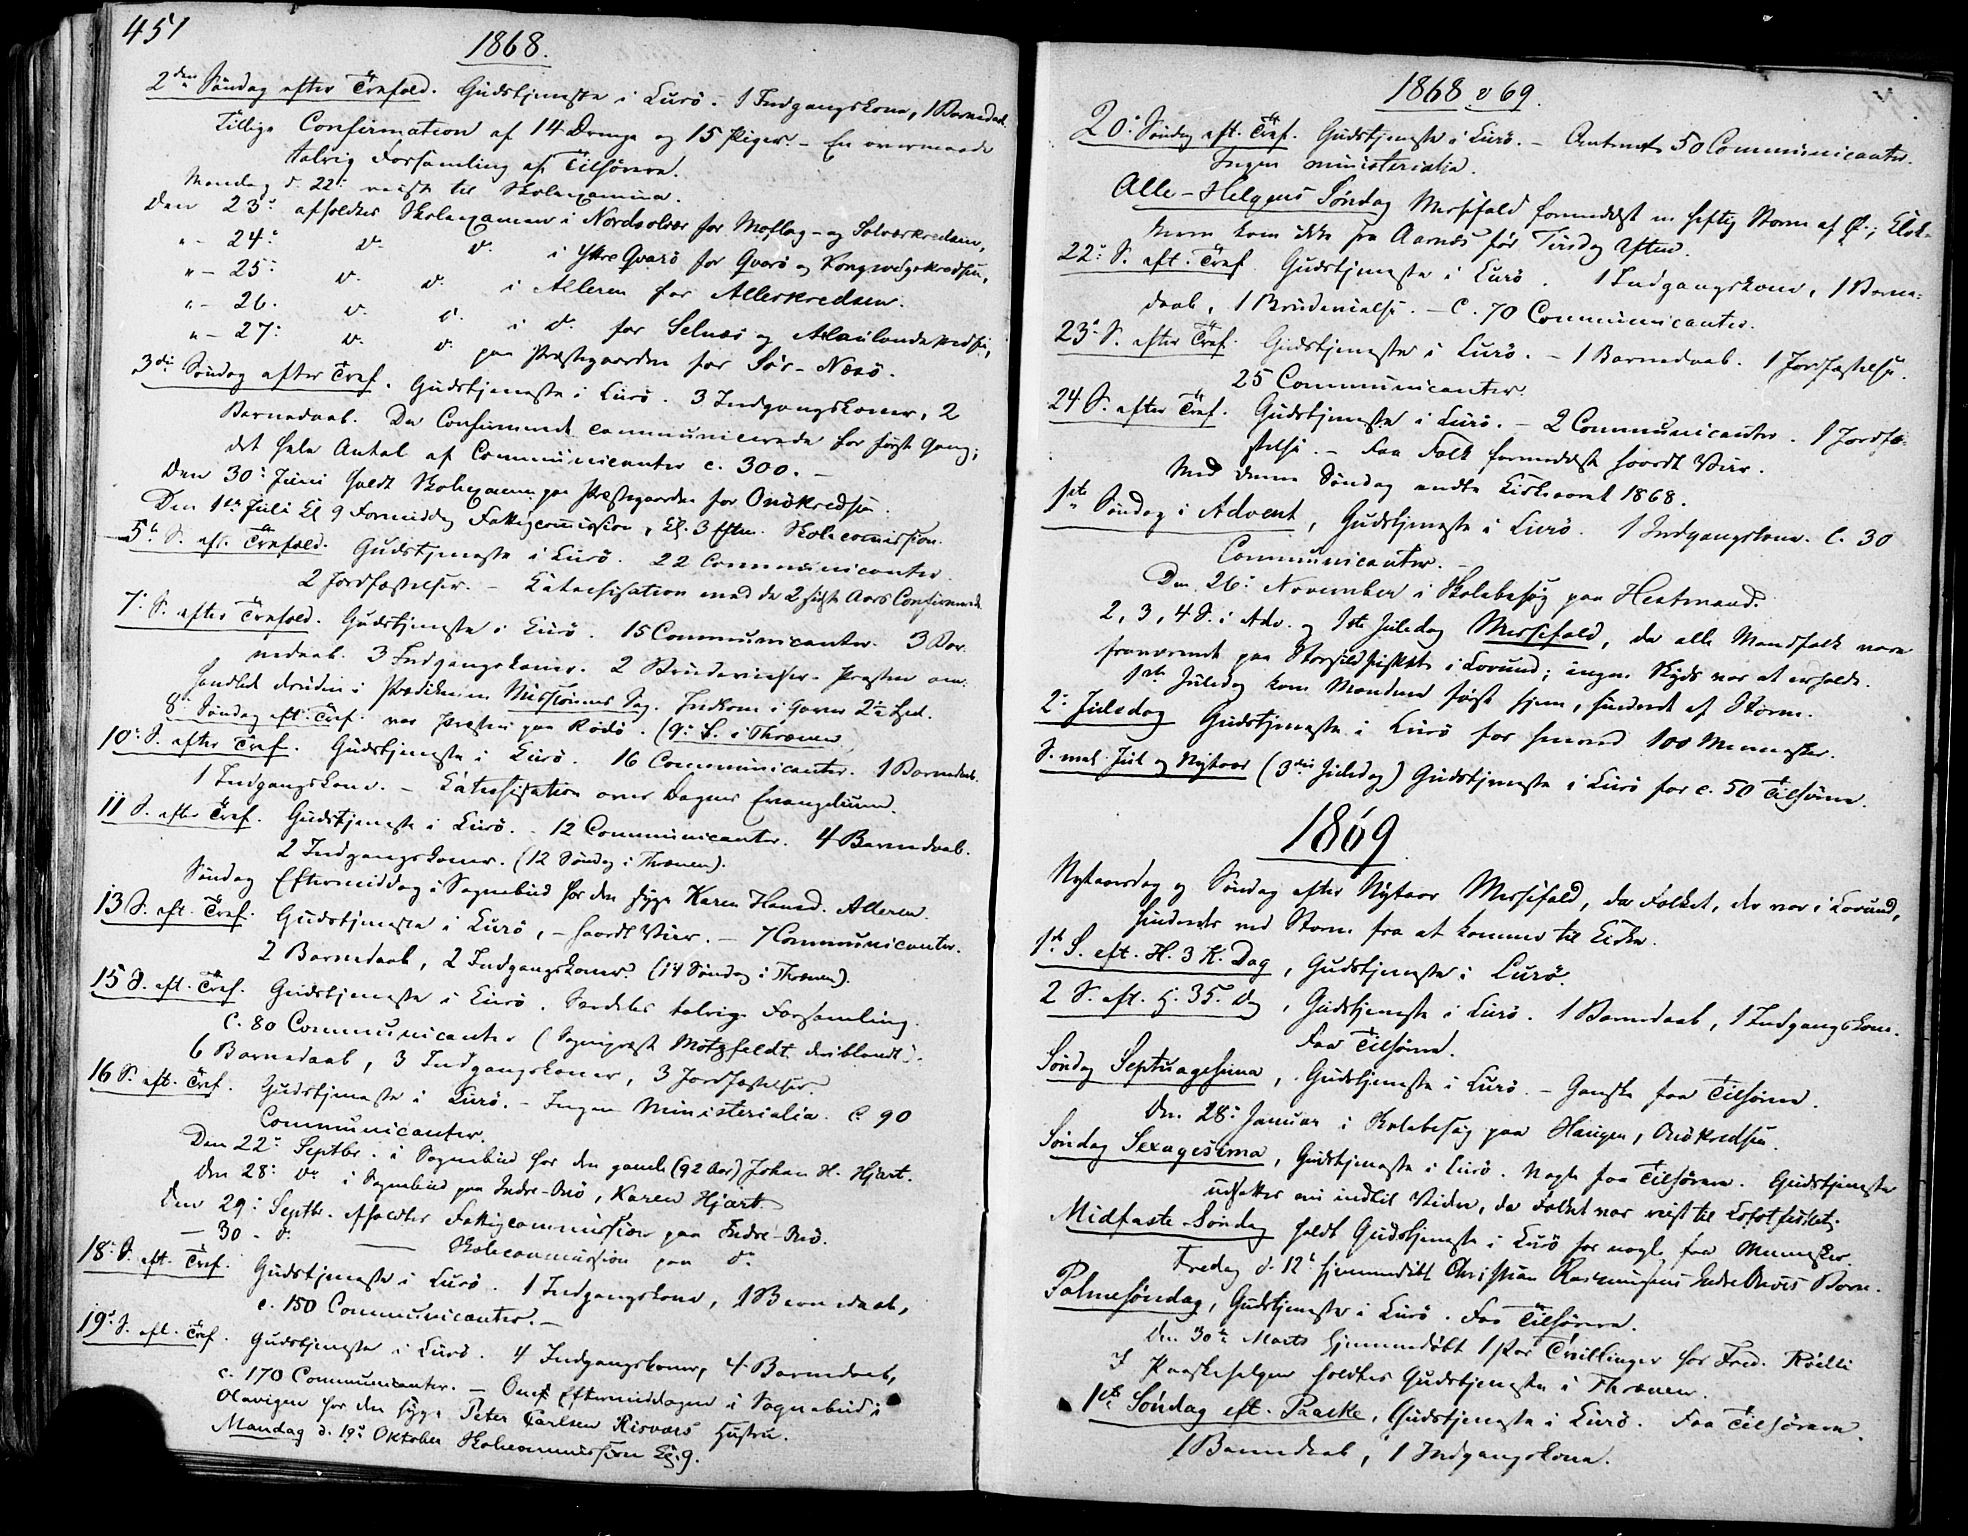 451
1868.
2den Søndag efter Trefold. Gudstjeneste i Lurö. 1 Indgangskone, 1 Barnedaab.
Tillige Confirmation af 14 Drenge og 15 Piger. – En overmaade
talrig Forsamling af Tilhörere.
Mandag d. 22. reiste til Skoleexamina.
Den 23: afholdtes Skoleexamen i Nordsolvær for Moflag- og Solværkredsen,
" – 24: do. do. i Ytre Qvarö for Qvarö og Kongsvegskredsen,
" – 25: do. do. i Alleren for Allerskredsen.
" – 26. do. do. i do. for Selnæs og Aldrilandskredsen,
" – 27: do. do. paa Præstegaarden for Sör-Næsö.
3die Søndag efter Tref. Gudstjeneste i Lurö. 3 Indgangskoner, 2
Barnedaab. De Confirmerede communicerede for første Gang;
det hele Antal af Communicanter c. 300. –
Den 30: Juni holdt Skoleexamen paa Præstegaarden for Onökredsen.
Den 1ste Juli Kl 9 Formiddag Fattigcommission, Kl. 3 Efterm. Skolecommission.
5te S. eft. Trefold. Gudstjeneste i Lurö. 22 Communicanter.
2 Jordfæstelser. – Katechisation med de 2 sidste Aars Confirmerede
7: S. efter Trefold. Gudstjeneste i Lurö. 15 Communicanter. 3 Bar-
nedaab. 3 Indgangskoner. 2 Brudevielser. Præsten om-
handlede desuden i Prædikenen Missionens Sag. Indkom i Gaver 2 1/2 Spd.
8: Søndag eft. Tref. var Præsten paa Rödö. (9: S. i Thrænen)
10: S. efter Tref. Gudstjeneste i Lurö. 16 Communicanter. 1 Barnedaab.
1 Indgangskone. – Katechisation over Dagens Evangelium.
11 S. efter Tref. Gudstjeneste i Lurö. – 12 Communicanter. 4 Barnedaab.
2 Indgangskoner. (12 Søndag i Thrænen).
Søndag Eftermiddag i Sognebud for den syge Karen Hansd. Alleren.
13 S. eft. Tref. Gudstjeneste i Lurö, – haardt Veir. – 7 Communicanter.
2 Barnedaab, 2 Indgangskoner. (14 Søndag i Thrænen).
15 S. eft. Tref. Gudstjeneste i Lurö. Særdeles talrig Forsamling.
C. 80 Communicanter (Sognepræst Motzfeldt deriblandt).
6 Barnedaab, 3 Indgangskoner, 3 Jordfæstelser.
16 S. eft. Tref. Gudstjeneste i Lurö. – Ingen Ministerialia. C. 90
Communicanter.
Den 22: Septbr. i Sognebud for den gamle (92 Aar) Johan H. Hjart.
Den 28: do i Sognebud paa Indre-Onö, Karen Hjart.
Den 29: Septbr. Afholdtes Fattigcommission paa Indre-Onö.
– 30 – do. — Skolecommission paa do
18: S. eft. Tref. Gudstjeneste i Lurö. 1 Indgangskone, 1 Barnedaab,
c. 150 Communicanter. –
19: S. eft. Tref. Gudstjeneste i Lurö. 4 Indgangskoner, 4 Barnedaab,
c. 170 Communicanter. – Om Eftermiddagen i Sognebud i
Olavigen for den syge Peter Carlsen Risværs Hustru.
Mandag d. 19: Oktober Skolecommission Kl. 9.
1868 & 69.
20: Søndag eft. Tref. Gudstjeneste i Lurö. – Omtrent 50 Communicanter.
Ingen ministerialia.
Alle-Helgens Søndag Messefald formedelst en heftig Storm af Ø.; Klok-
keren kom ikke fra Aarnes før Tirsdag Aften.
22: S. eft. Tref. Gudstjeneste i Lurö. 1 Indgangskone, 1 Barne-
daab, 1 Brudevielse. – C. 70 Communicanter.
23: S. efter Tref. Gudstjeneste i Lurö. – 1 Barnedaab. 1 Jordfæstelse.
25 Communicanter.
24 S. efter Tref. Gudstjeneste i Lurö. – 2 Communicanter. 1 Jordfæ-
stelse. – Faa Folk formedelst haardt Veir.
Med denne Søndag endte Kirkeaaret 1868.
1ste Søndag i Advent, Gudstjeneste i Lurö. 1 Indgangskone. C. 30
Communicanter. –
Den 26: November i Skolebesøg paa Hestmand.
2, 3, 4 S. i Adv. og 1ste Juledag Messefald, da alle Mandfolk vare
fraværende paa Storsildfisket i Lovund; ingen Skyds var at erholde.
1ste Juledag kom Mændene først hjem, hindrede af Storm.
2: Juledag Gudstjeneste i Lurö for henved 100 Mennesker.
S. mel. Jul og Nytaar (3die Juledag) Gudstjeneste i Lurö for c. 50 Tilhörere.
1869
Nytaarsdag og Søndag efter Nytaar Messefald, da Folket, der var i Lovund,
hindredes ved Storm fra at komme til Kirke.
1ste S. eft. H. 3 K. Dag, Gudstjeneste i Lurö.
2 S. eft. H. 3 K. Dag, Gudstjeneste i Lurö. 1 Barnedaab, 1 Indgangskone.
Faa Tilhörere.
Søndag Septuagesima, Gudstjeneste i Lurö. – Ganske faa Tilhörere.
Den 28: Januar i Skolebesøg paa Haugen, Onökredsen.
Søndag Sexagesima, Gudstjeneste i Lurö. Nogle faa Tilhörere. Gudstjeneste
udsættes nu indtil Videre, da Folket var reist til Lofotfisket.
Midfaste-Søndag holdt Gudstjeneste i Lurö for nogle faa Mennesker.
Fredag d. 12: hjemmedöbt Christian Rasmussens Indre Onöes Barn.
Palmesøndag, Gudstjeneste i Lurö. Faa Tilhörere.
Den 30te Marts hjemmedøbt 1 Par Tvillinger for Fred. Röelli
I Paaskehelgen holdtes Gudstjeneste i Thrænen.
1ste Søndag eft. Paaske, Gudstjeneste i Lurö. Faa Tilhörere.
1 Barnedaab, 1 Indgangskone.